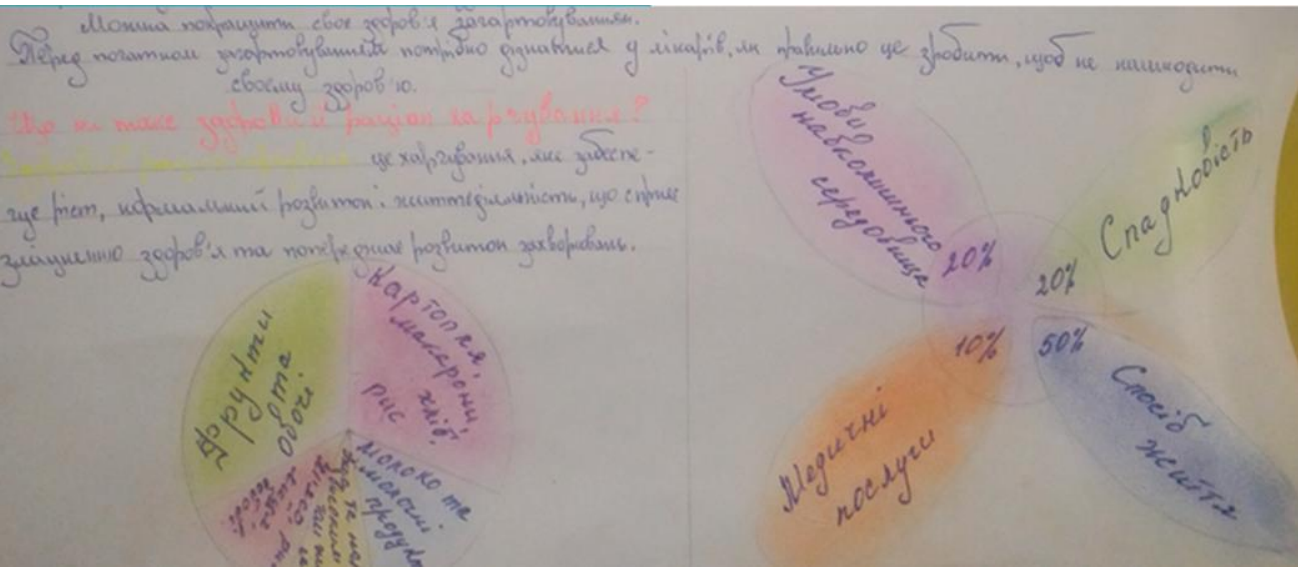 Можна покращити своє здоров'я загартовуванням.
Перед початком загартовування потрібно дізнатися у лікарів, як правильно це зробити, щоб не нашкодити
своєму здоров'ю.
Що ж таке здоровий раціон харчування?
це харчування, яке забезпе-
чує ріст, нормальний розвиток і життєдіяльність, що сприяє
зміцненню здоров'я та попереджає розвиток захворювань.
Фрукти
та
овочі
Картопля,
макарони,
хліб,
рис
Молоко та
молочні
Умови
навколишнього
середовища
20%
Спадковість
20%
Медичні
послуги
10%
50%
Спосіб
життя